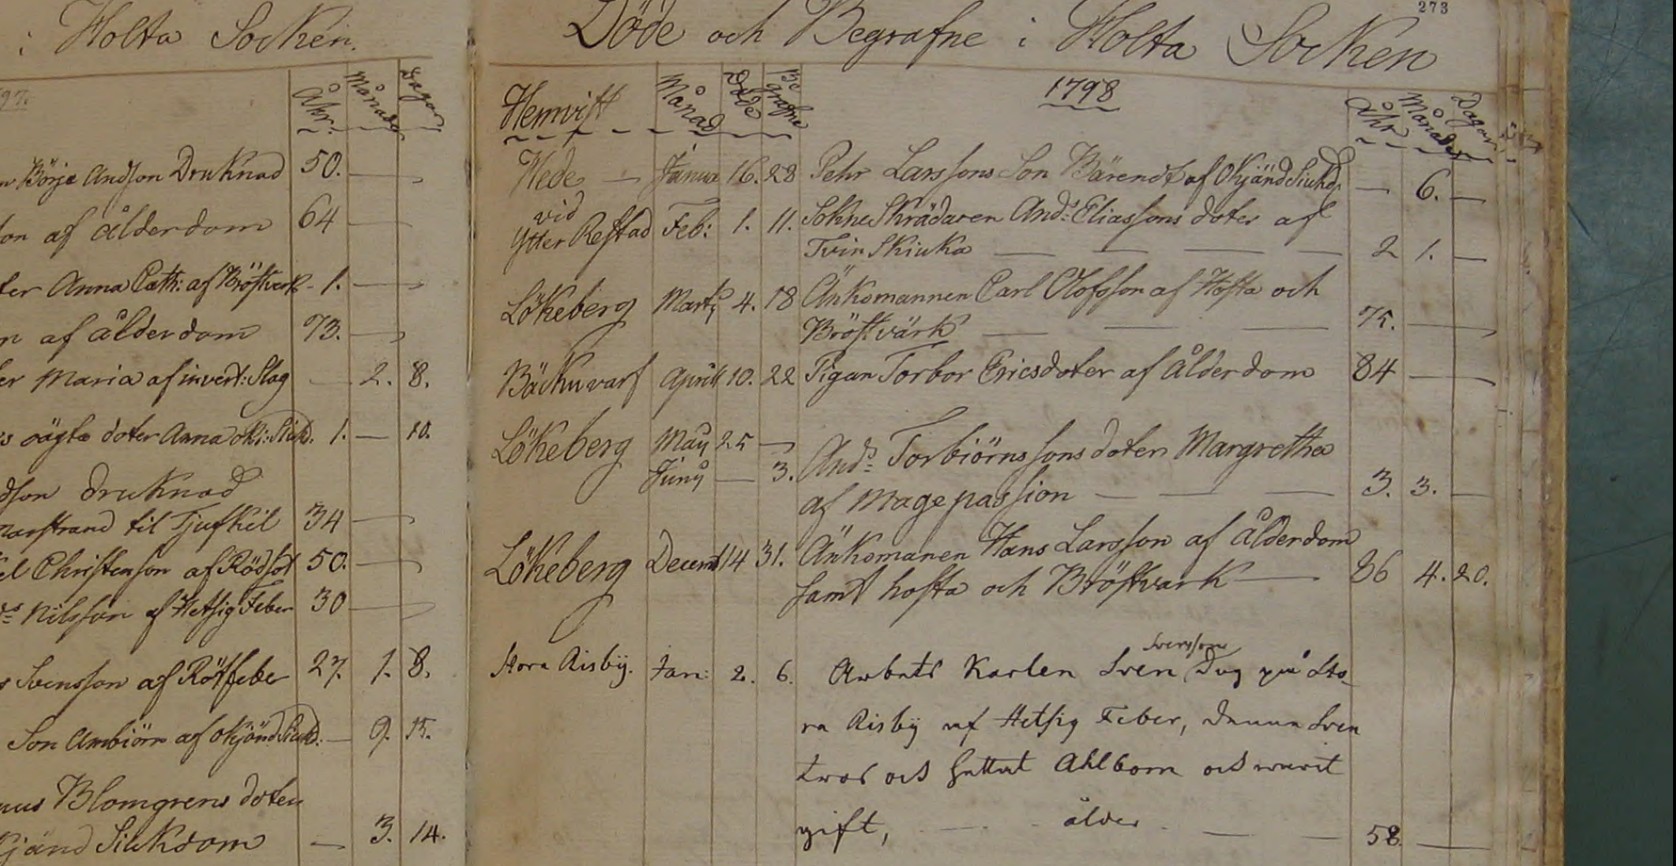 i Holta Socken.
Åhr. Månader Dagar
Börje Andsson Druknad 50.
af ålderdom 64
Anna Cath: af Bröstverk 1.
af ålderdom 73.
Maria af invert: Slag 2. 8.
oägta doter Anna oki: Siukd. 1. 10.
druknad
til Tjufkil 34
Christenson af Rödsot 50.
Nilsson af Hetsig Feber 30
Svensson af Rötfeber 27. 1. 8.
Son Ambiörn af okjänd Siukd. 9. 15.
Blomgrens doter
Siukdom 3. 14.
273
Döde och Begrafne i Holta Socken
Hemvist Månad Döde Begrafne 1798 Åhr Månader Dagar
Hede Janua 16. 28 Pehr Larssons Son Bärendt af Okjänd Siukd. 6.
vid
Ytter Restad Feb: 1. 11. Sokne Skrädaren And: Eliassons doter af
Tvin Skiuka 2 1.
Lökeberg Marty 4. 18 Änkomannen Carl Olofsson af Hosta och
Bröstvärk 75.
Bäckuvarf April 10. 22 Pigan Torbor Ericsdoter af Ålderdom 84
Lökeberg May 25
Juny 3. And: Torbiörnssons doter Margretha
af Magepassion 3. 3.
Lökeberg Decemb 14 31. Änkomanen Hans Larsson af ålderdom
samt hosta och Bröstvark 86 4. 20.
Svensson
Stora Risby. Jan: 2. 6. Arbets Karlen Sven Dug på Sto-
ra Risby af Hetsig Feber, denne Sven
och hettat Ahlbom och warit
gift, ålder 58